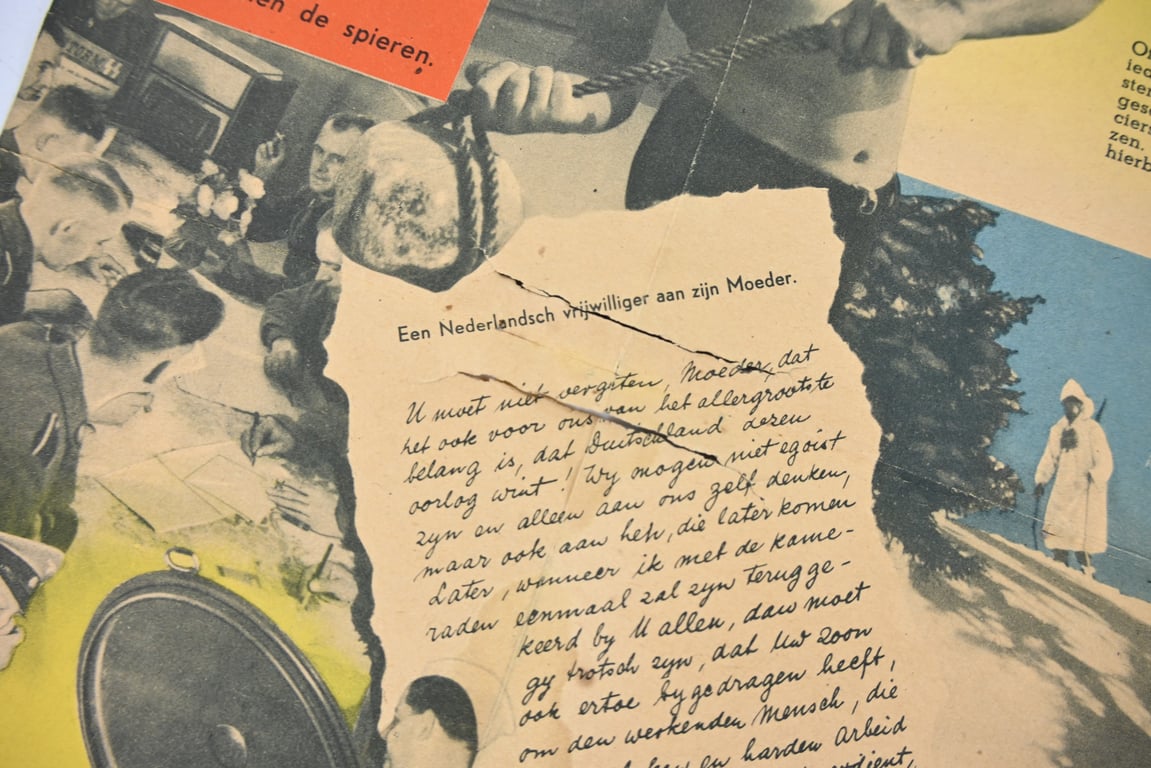 en de spieren.
Een Nederlandsch vrijwilliger aan zijn Moeder.
U moet niet vergeten, Moeder, dat
het ook voor ons van het allergrootste
belang is, dat Duitschland dezen
oorlog wint! Wy mogen niet egoist
zyn en alleen aan ons zelf denken,
maar ook aan hen, die later komen
Later, wanneer ik met de kame-
raden eenmaal zal zyn terugge-
keerd by U allen, dan moet
gy trotsch zyn, dat Uw zoon
ook ertoe bygedragen heeft,
om den werkenden Mensch, die
en harden Arbeid
dient,
O
ied
ster
gesc
ciers
zen.
hierb